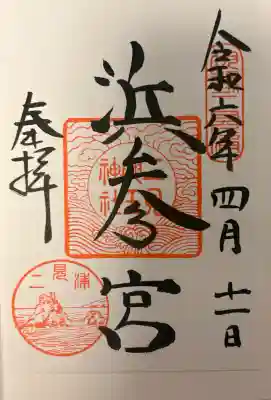 令和六年四月十一日
浜参宮
奉拝
神社
二見浦